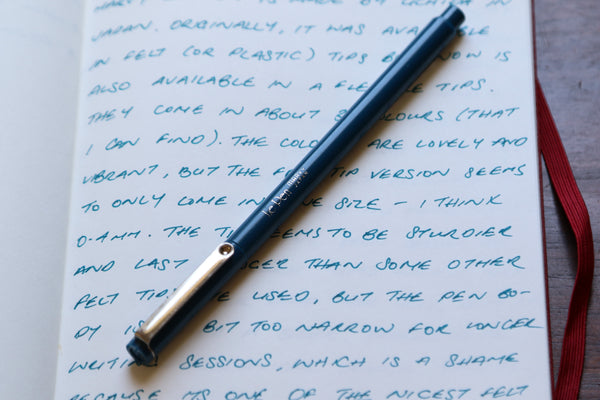 IS MADE BY UCHIDA IN
JAPAN. ORIGINALLY, IT WAS
IN FELT (OR PLASTIC) TIPS NOW IS
ALSO AVAILABLE IN A TIPS.
THEY COME IN ABOUT COLOURS (THAT
I CAN FIND). THE ARE LOVELY AND
VIBRANT, BUT THE TIP VERSION SEEMS
TO ONLY COME IN SIZE – I THINK
0.4MM. THE SEEMS TO BE STURDIER
AND LAST THAN SOME OTHER
FELT USED, BUT THE PEN BO-
DY BIT TOO NARROW FOR LONGER
WRITING SESSIONS, WHICH IS A SHAME
BECAUSE ITS ONE OF THE NICEST FELT
Le Pen